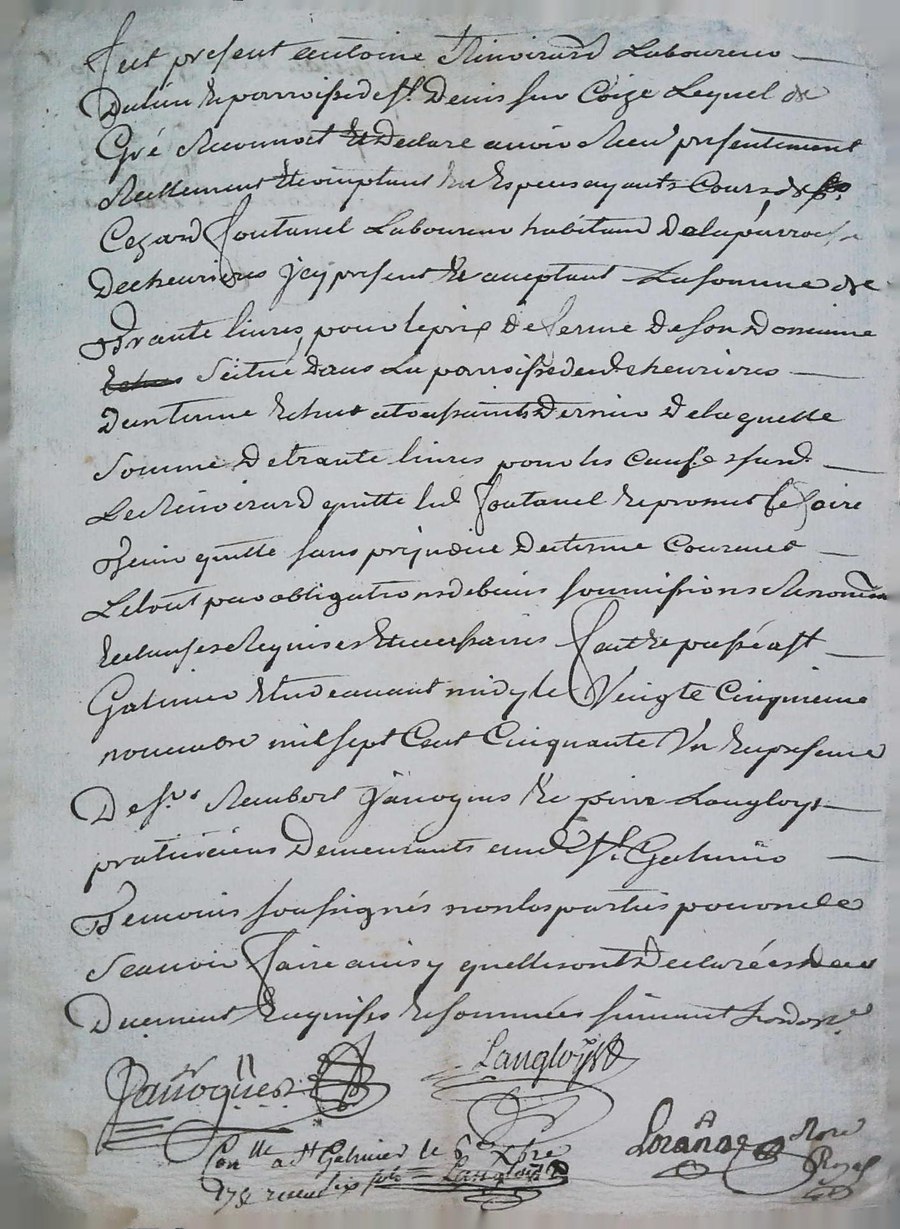 fut present antoine Rinoirard Laboureur
Dulieu & parroisse de St. Denis sur Coize Lequel de
Gré Reconnoit Et Declare avoir Receu presentement
Reellement & comptant En Especes ayants Cours, de
Cezard fontanel Laboureur habitant De la parroisse
De cheurieres jcy present & aceptant La somme de
Trante livres, pour le prix de ferme De son Domaine
scitué Dans La parroisse de cheurieres
D'un terme Echus a toussaints Dernier De laquelle
Somme De trante livres pour les Causes
Le Rinoirard quitte led fontanel & promet le faire
Tenir quitte sans prejudice Du terme Courent
Le tout par obligations de biens soumissions
& clauses Requises Et necessaires fait & passé a St
Galmier Etude avant midy le Vingte Cinquieme
novembre mil sept Cent Cinquante Un En presence
De Srs Rembert Janoÿres & pierre Langloys
praticiens Demeurants aud St Galmier
Temoins soussignés non les parties pour ne le
Scavoir faire ainsy quelles ont Declarées
Duement Enquises & sommées suivant Lordonce
Langloys
Conlle a St Galmier le 6e Xbre
Langloys
Royal